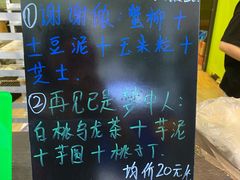 ①谢谢侬:蟹柳+
+豆泥+玉米粒+
芝士.
②再见已是梦中人:
白桃乌龙茶+芋泥
+芋圆+桃方丁.
均价20元/